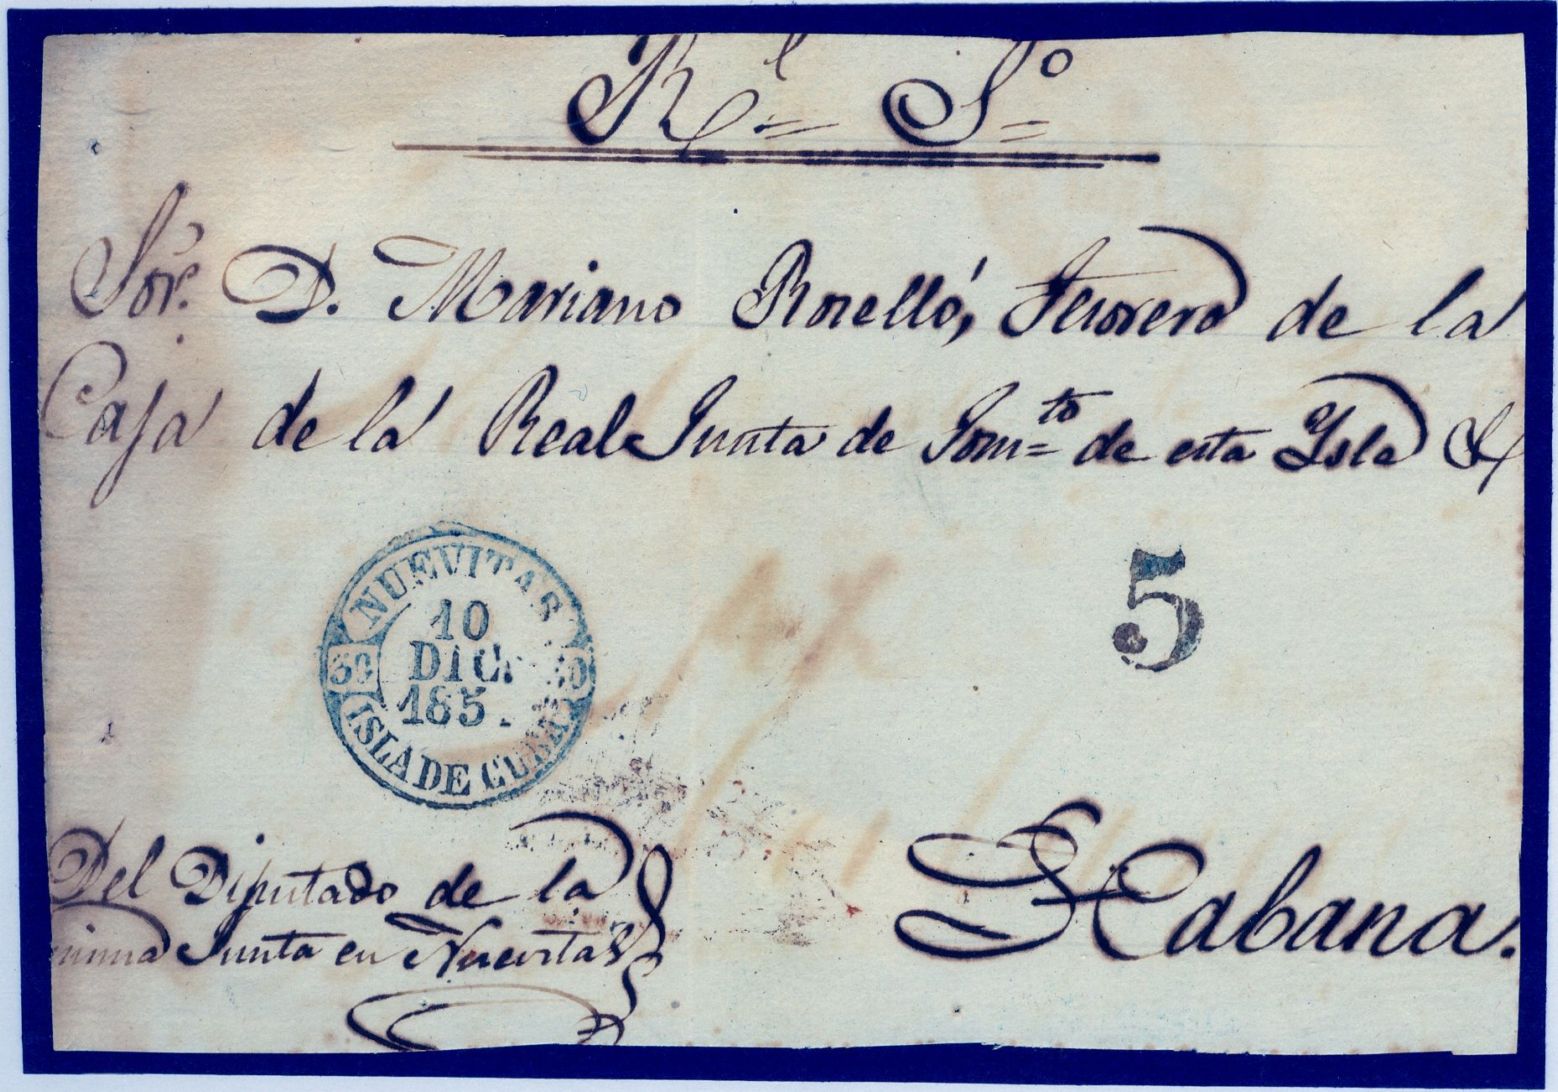 Rl. So
Sor. D. Mariano Roselló, Tesorero de la
Caja de la Real Junta de Fomto de esta Ysla &
NUEVITAS
10
DIC.
185.
30
ISLA DE CUBA
5
Del Diputado de la
misma Junta en Nuevitas
Habana.